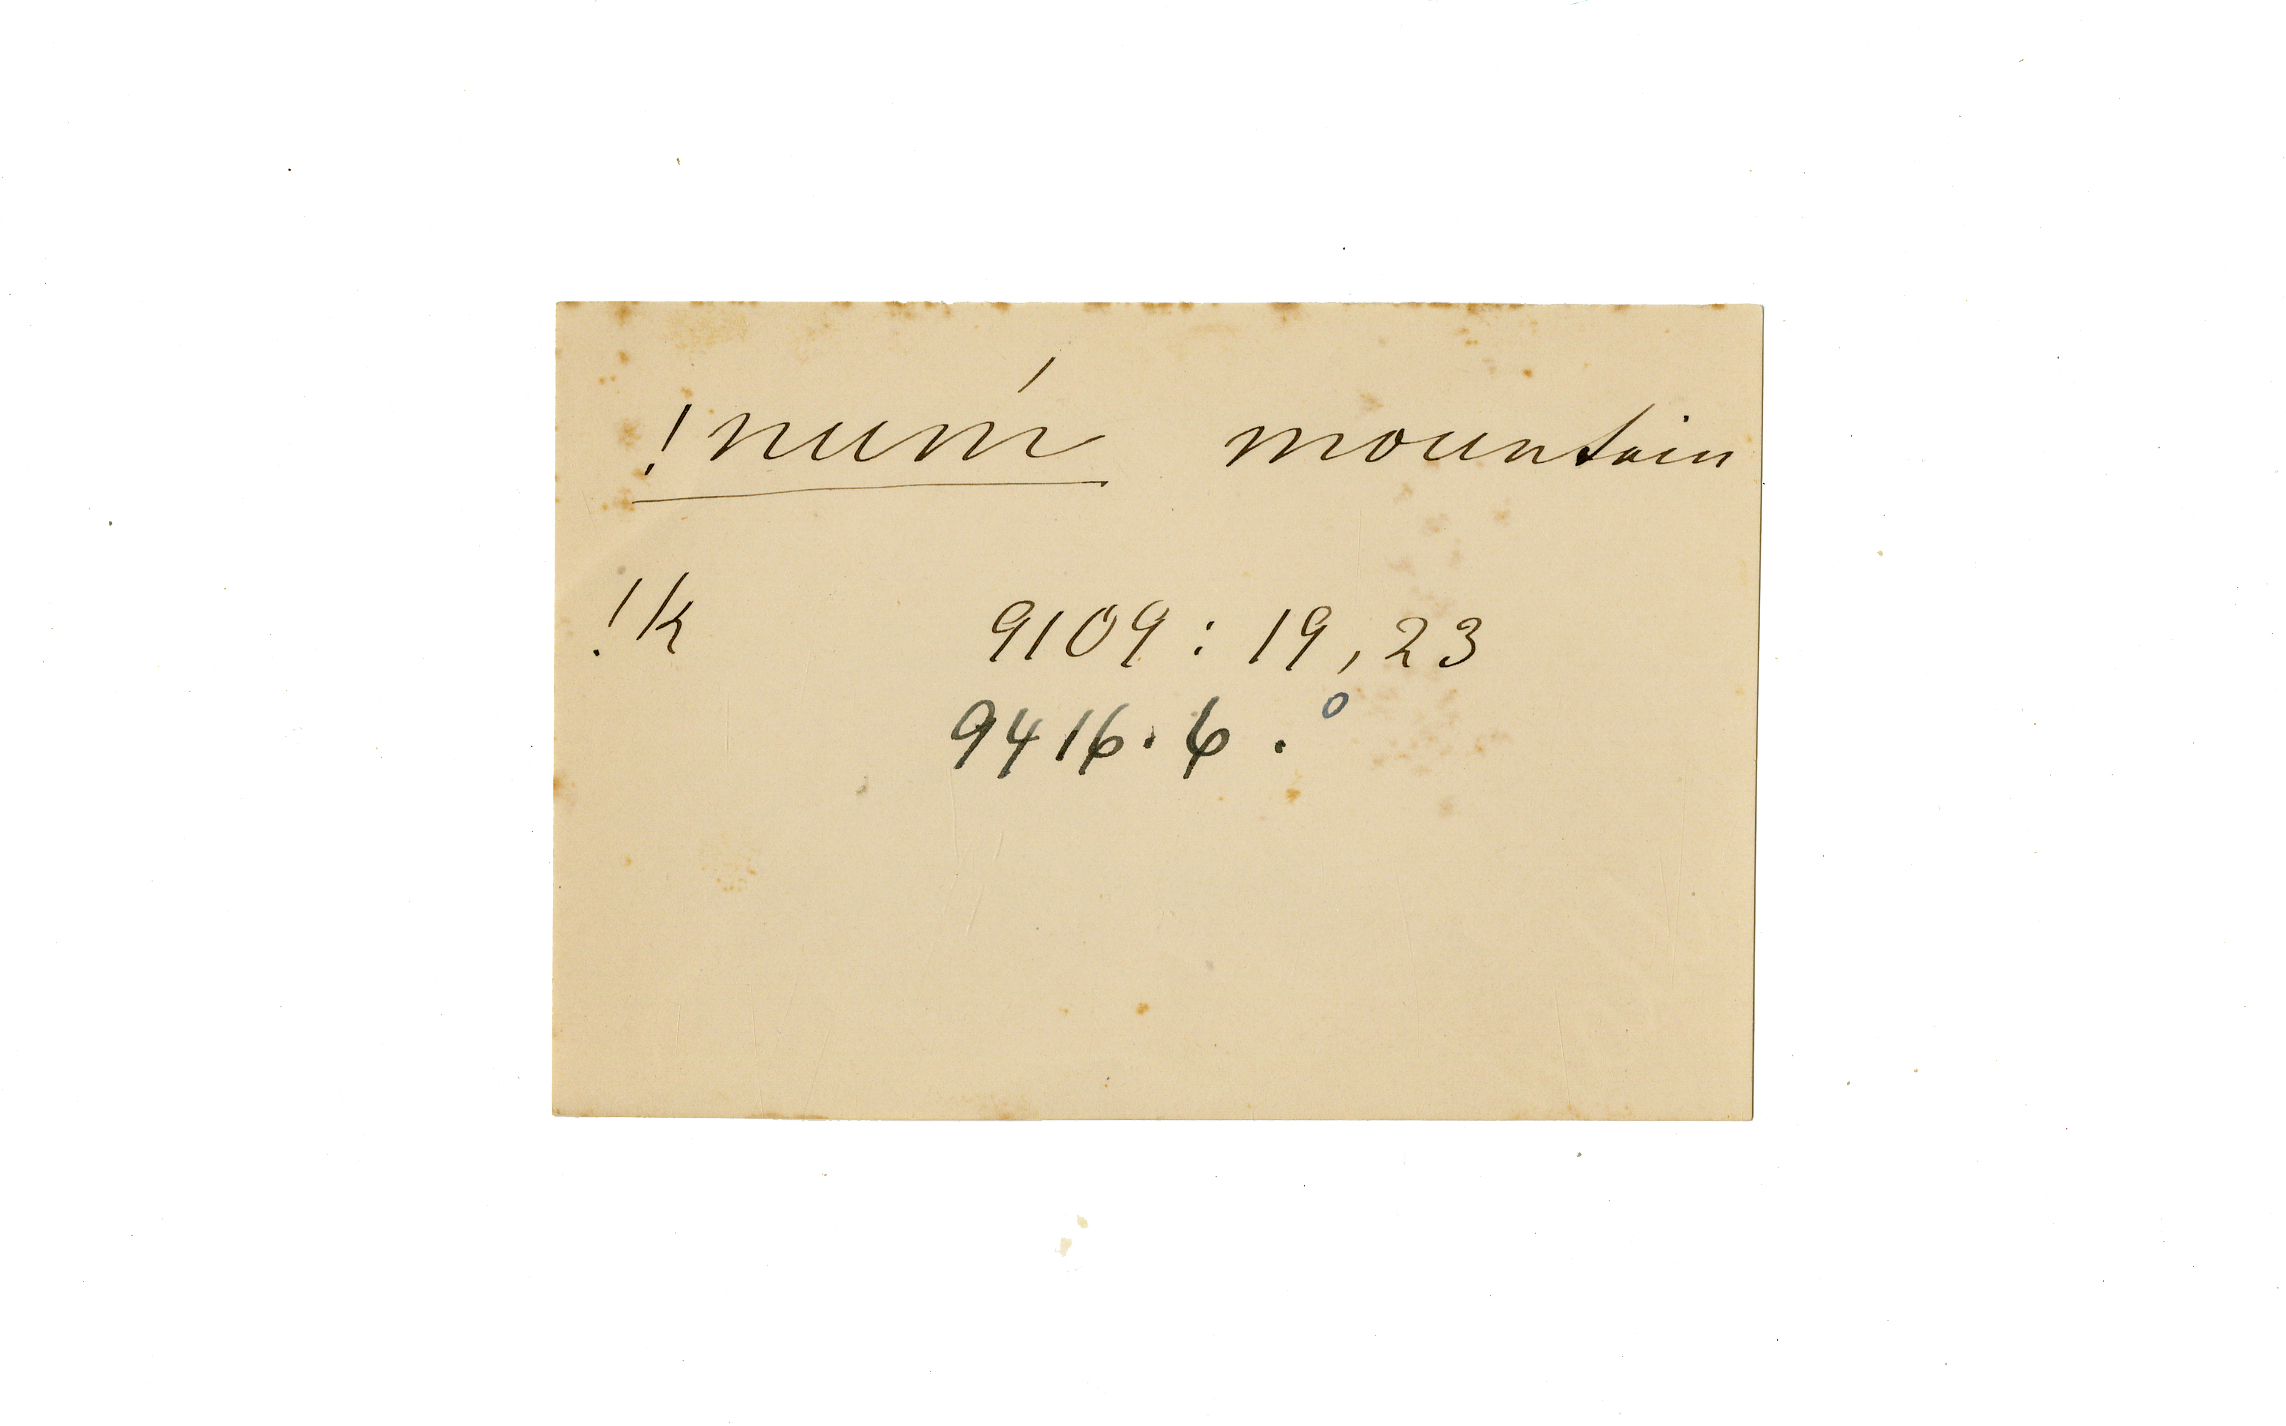 !nuḿ mountain
!k 9109 : 19, 23
9416. 6. °